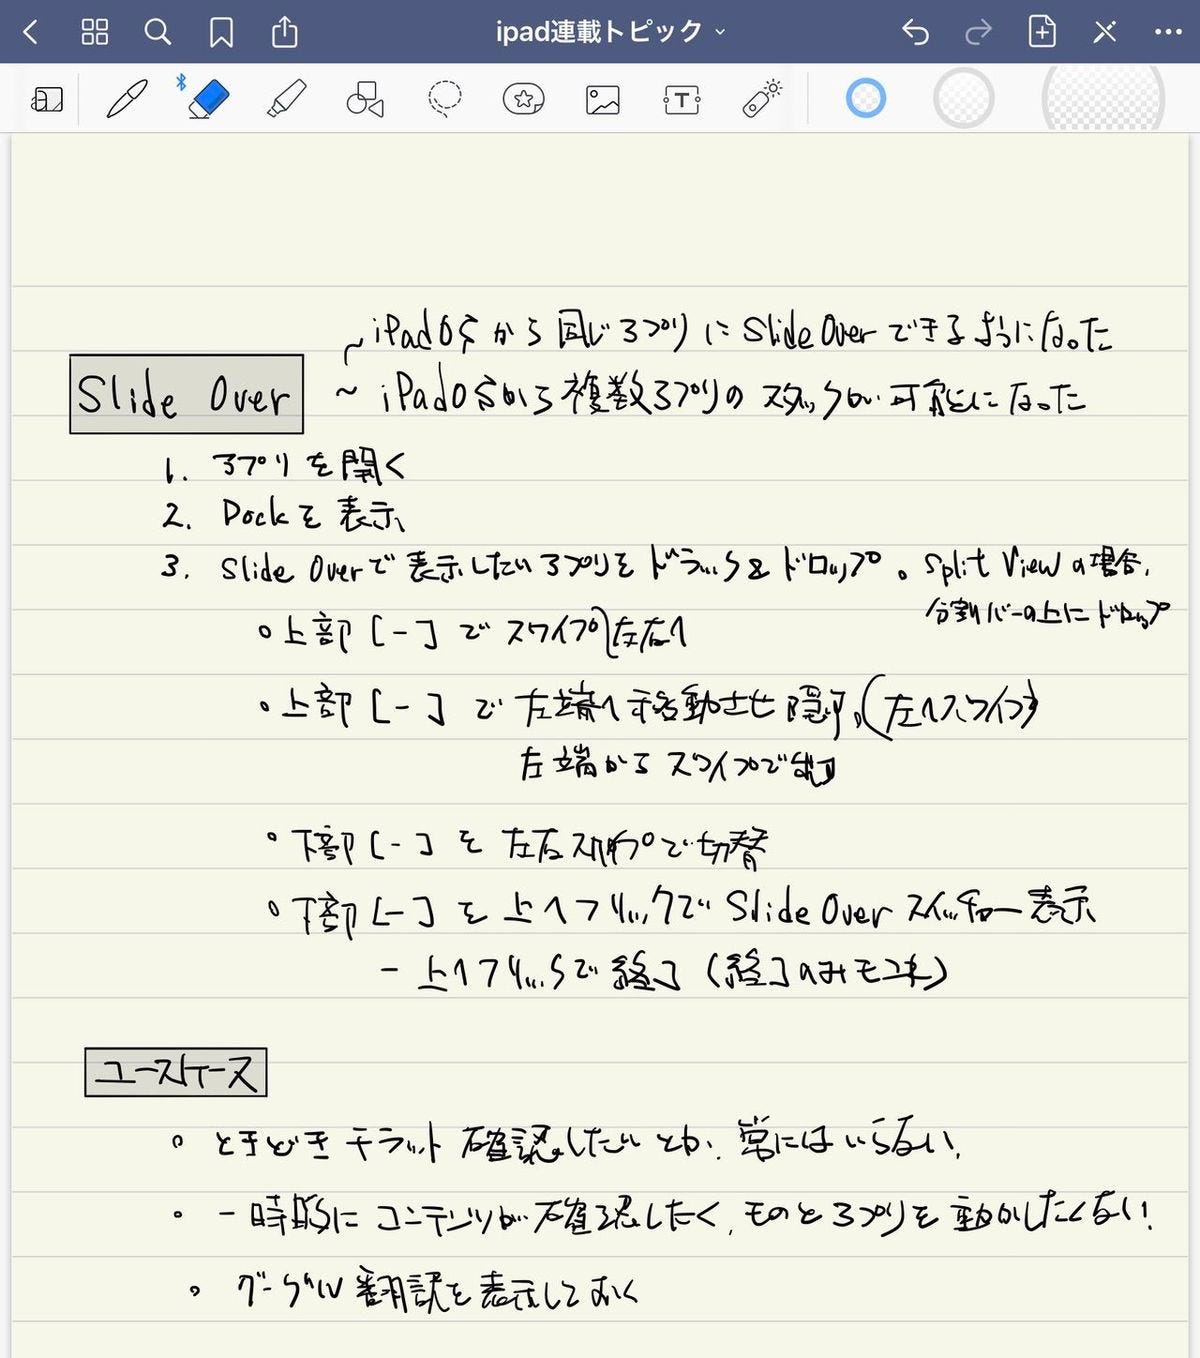 ipad連載トピック
~ iPadOSから同じアプリにSlide Overできるようになった
Slide Over
~ iPadOSから複数アプリのスタックが可能になった
1. アプリを開く
2. Dockを表示
3. Slide Overで表示したいアプリをドラッグ&ドロップ。Split Viewの場合、
分割バーの上にドロップ
○上部[-]でスワイプ 左右へ
○上部[-]で左端へ移動させ隠す。(左へスワイプ)
左端からスワイプで
○下部[-]を左右スワイプで切替
○下部[-]を上へフリックでSlide Overスイッチャー表示
- 上へフリックで終了(終了のみ
ユースケース
○ ときどきチラット確認したいとか、常にはいらない。
○ 一時的にコンテンツが確認したく、ものアプリを動かしたくない。
○ グーグル翻訳を表示しておく